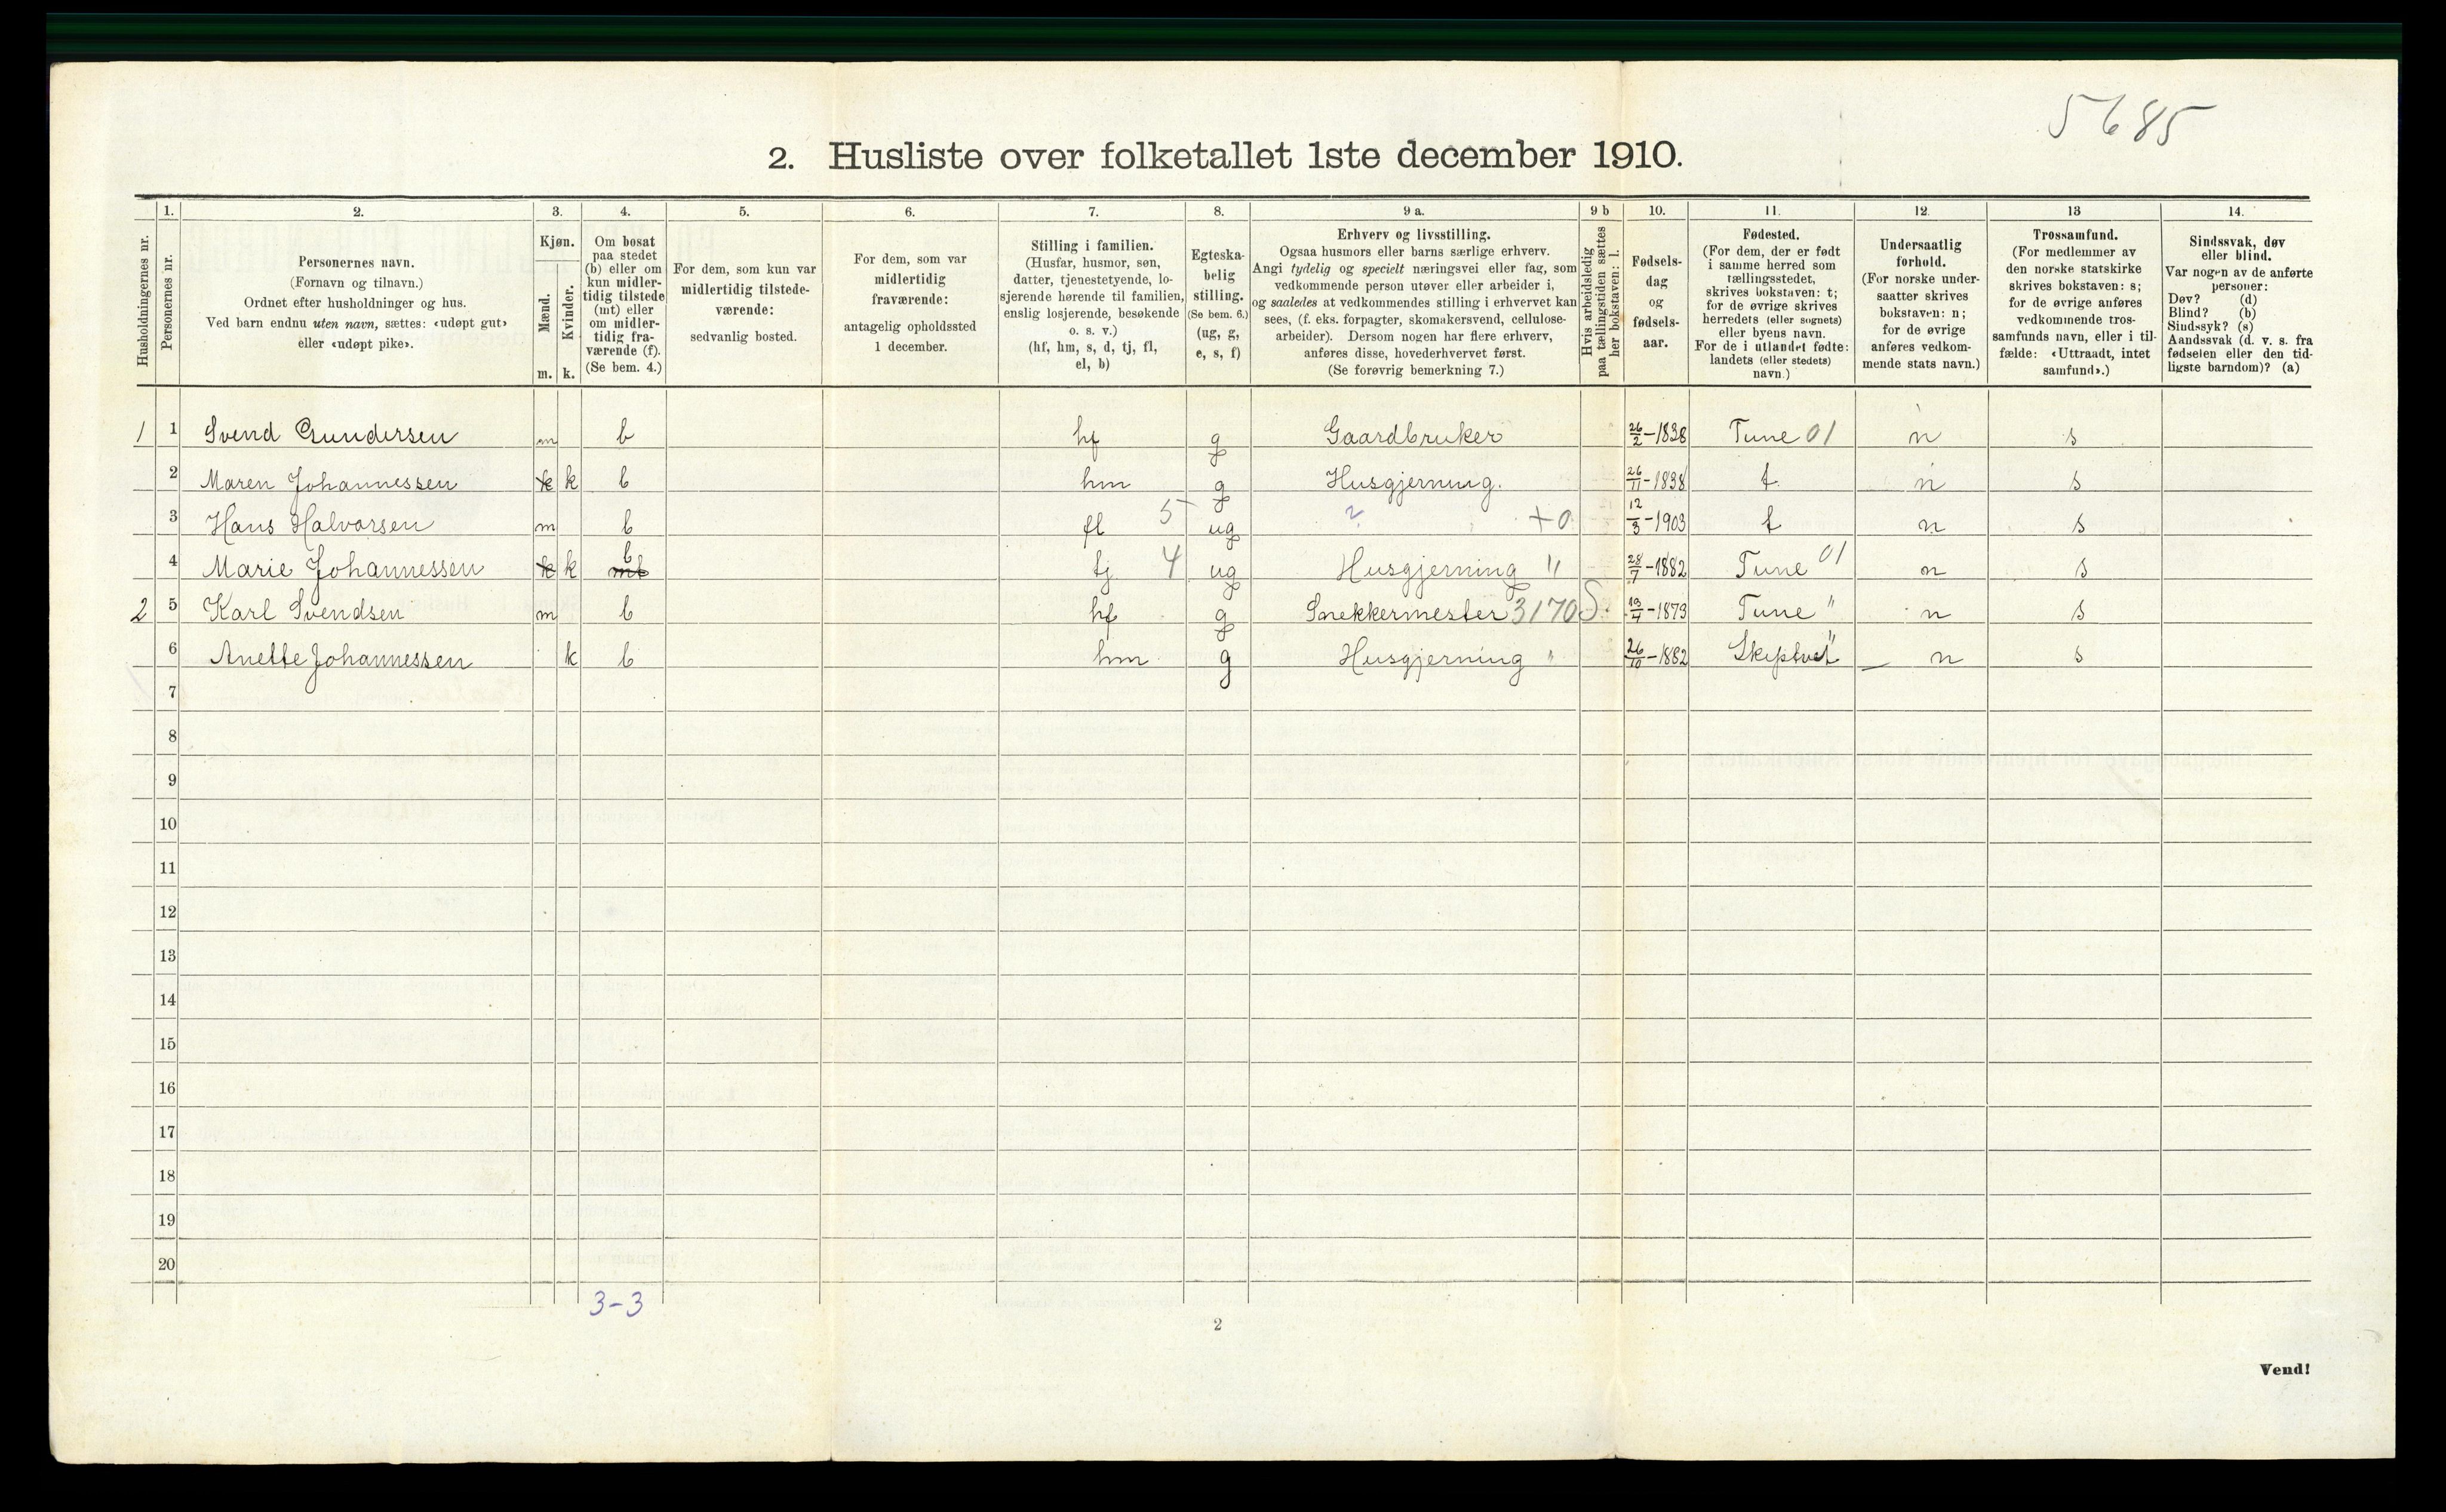 5685
2. Husliste over folketallet 1ste december 1910.
1. 2. 3. 4. 5. 6. 7. 8. 9 a. 9 b 10. 11. 12. 13 14.
Husholdningernes nr.
Personernes nr.
Personernes navn.
(Fornavn og tilnavn.)
Ordnet efter husholdninger og hus.
Ved barn endnu uten navn, sættes: «udøpt gut»
eller «udøpt pike».
Kjøn.
Mænd.
Kvinder.
m. k.
Om bosat
paa stedet
(b) eller om
kun midler-
tidig tilstede
(mt) eller
om midler-
tidig fra-
værende (f).
(Se bem. 4.)
For dem, som kun var
midlertidig tilstede-
værende:
sedvanlig bosted.
For dem, som var
midlertidig
fraværende:
antagelig opholdssted
1 december.
Stilling i familien.
(Husfar, husmor, søn,
datter, tjenestetyende, lo-
sjerende hørende til familien,
enslig losjerende, besøkende
o. s. v.)
(hf, hm, s, d, tj, fl,
el, b)
Egteska-
belig
stilling.
(Se bem. 6.)
(ug, g,
e, s, f)
Erhverv og livsstilling.
Ogsaa husmors eller barns særlige erhverv.
Angi tydelig og specielt næringsvei eller fag, som
vedkommende person utøver eller arbeider i,
og saaledes at vedkommendes stilling i erhvervet kan
sees, (f. eks. forpagter, skomakersvend, cellulose-
arbeider). Dersom nogen har flere erhverv,
anføres disse, hovederhvervet først.
(Se forøvrig bemerkning 7.)
Hvis arbeidsledig
paa tællingstiden sættes
her bokstaven: l.
Fødsels-
dag
og
fødsels-
aar.
Fødested.
(For dem, der er født
i samme herred som
tællingsstedet,
skrives bokstaven: t;
for de øvrige skrives
herredets (eller sognets)
eller byens navn.
For de i utlandet fødte:
landets (eller stedets)
navn.)
Undersaatlig
forhold.
(For norske under-
saatter skrives
bokstaven: n;
for de øvrige
anføres vedkom-
mende stats navn.)
Trossamfund.
(For medlemmer av
den norske statskirke
skrives bokstaven: s;
for de øvrige anføres
vedkommende tros-
samfunds navn, eller i til-
fælde: «Uttraadt, intet
samfund».)
Sindssvak, døv
eller blind.
Var nogen av de anførte
personer:
Døv? (d)
Blind? (b)
Sindssyk? (s)
Aandssvak (d. v. s. fra
fødselen eller den tid-
ligste barndom)? (a)
1 1 Svend Gundersen m b hf g Gaardbruker 26/2-1838 Tune 01 n s
2 Maren Johannessen k k b hm g Husgjerning. 26/11-1838 t. n s
3 Hans Halvorsen m b fl 5 ug ? +0 12/3-1903 t n s
4 Marie Johannessen k k mt b tj 4 ug Husgjerning " 28/7-1882 Tune 01 n s
2 5 Karl Svendsen m b hf g Snekkermester 3170 S. 19/4-1873 Tune " n s
6 Anette Johannessen k b hm g Husgjerning " 26/10-1882 Skiptvet " n s
7
8
9
10
11
12
13
14
15
16
17
18
19
20
3-3
2
Vend!